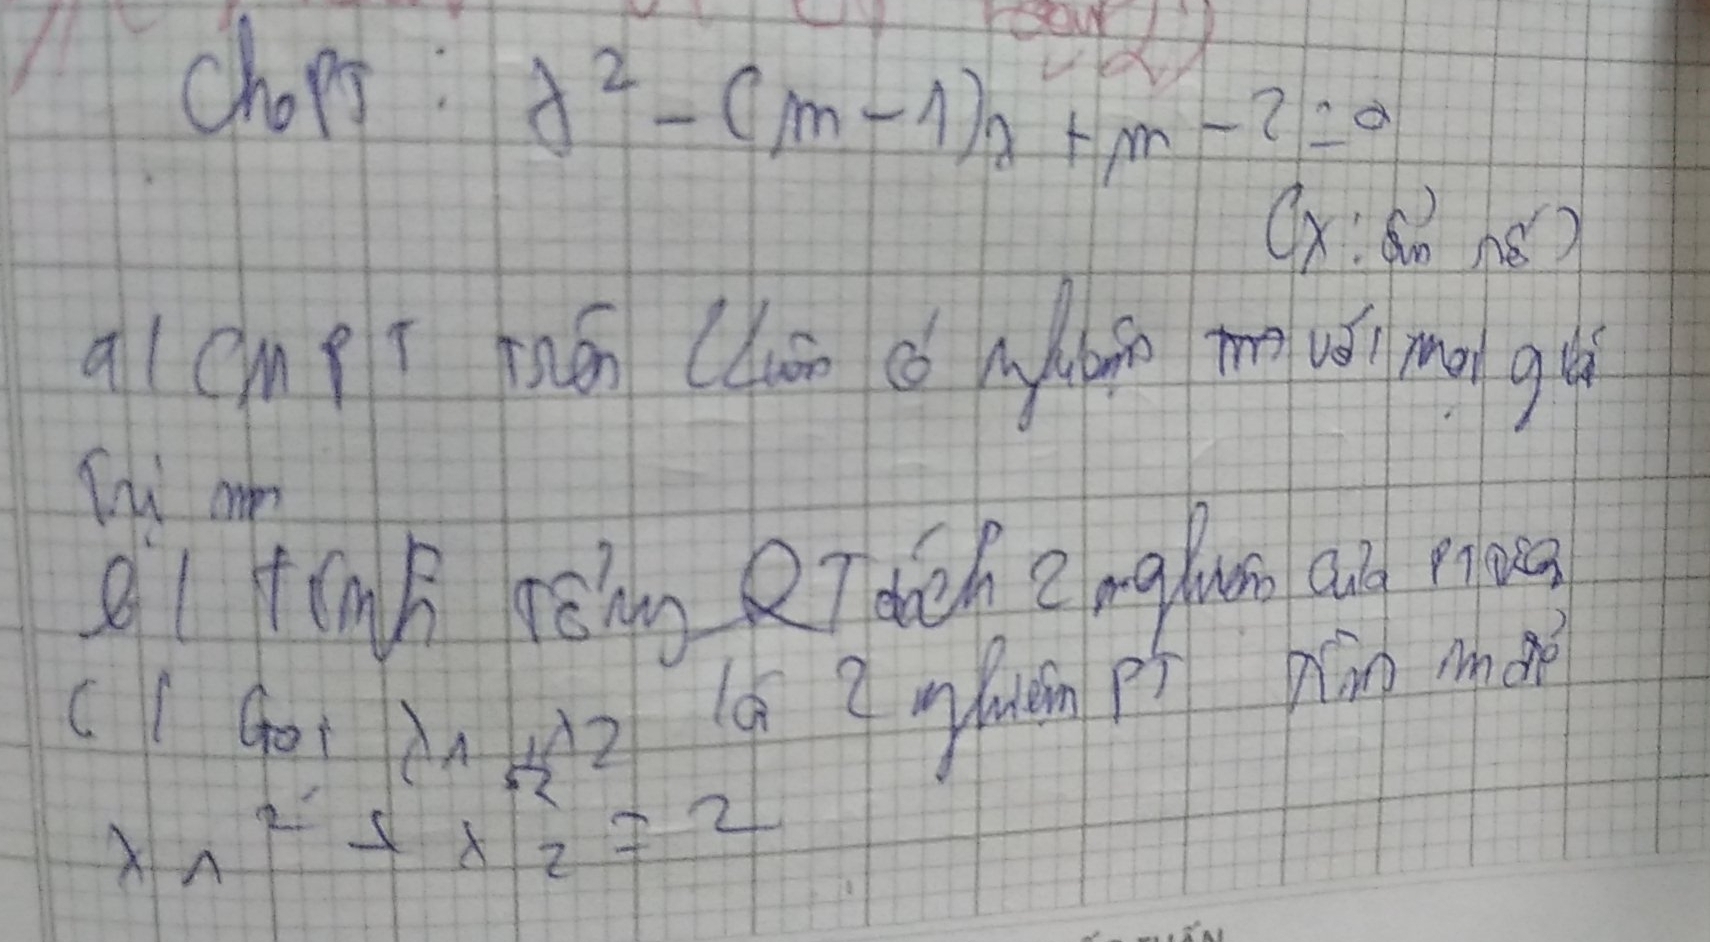 Cho PT : x² - (m - 1)x + m - 2 = 0
(x : ẩn số)
a / CM PT trên luôn có nghiệm với mọi giá
trị m
b / tính tổng tích 2 nghiệm của PT
c / Gọi x1, x2 là 2 nghiệm PT Tìm m để
x1² + x2² = 2